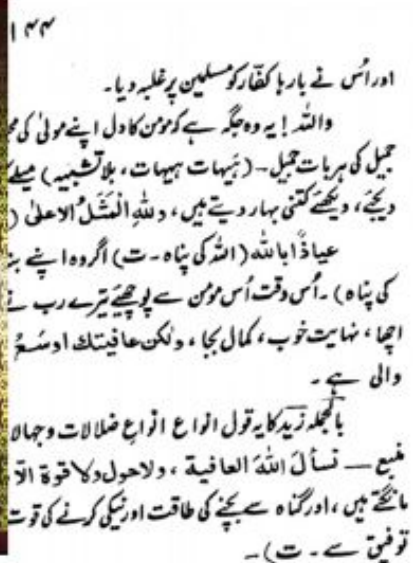 ۱۴۴
اور اُس نے بارہا کفّار کو مسلمین پر غلبہ دیا۔
واللہ! یہ وہ جگہ ہے کہ مومن کا دل اپنے مولیٰ کی
جمیل کی ہر بات جمیل۔ (ہَیہات ہیہات، بلاتشبیہ) میلے
دیجئے، دیکھئے کتنی بہار دیتے ہیں، وللّٰہِ الْمَثَلُ الاعلیٰ (
عیاذًا باللہ (اللہ کی پناہ ۔ ت) اگر وہ اپنے
کی پناہ)۔ اُس وقت اُس مومن سے پوچھئے تیرے رب نے
اچھا، نہایت خوب، کمال بجا، ولکن عافیتك اوسَعُ
والی ہے۔
بالجملہ زید کا یہ قول انواع انواعِ ضلالات و
منبع ــــ نسألُ اللهَ العافیة، ولاحول ولا قوة الّا
مانگتے ہیں، اور گناہ سے بچنے کی طاقت اور نیکی کرنے کی قوت
توفیق سے ۔ ت)۔